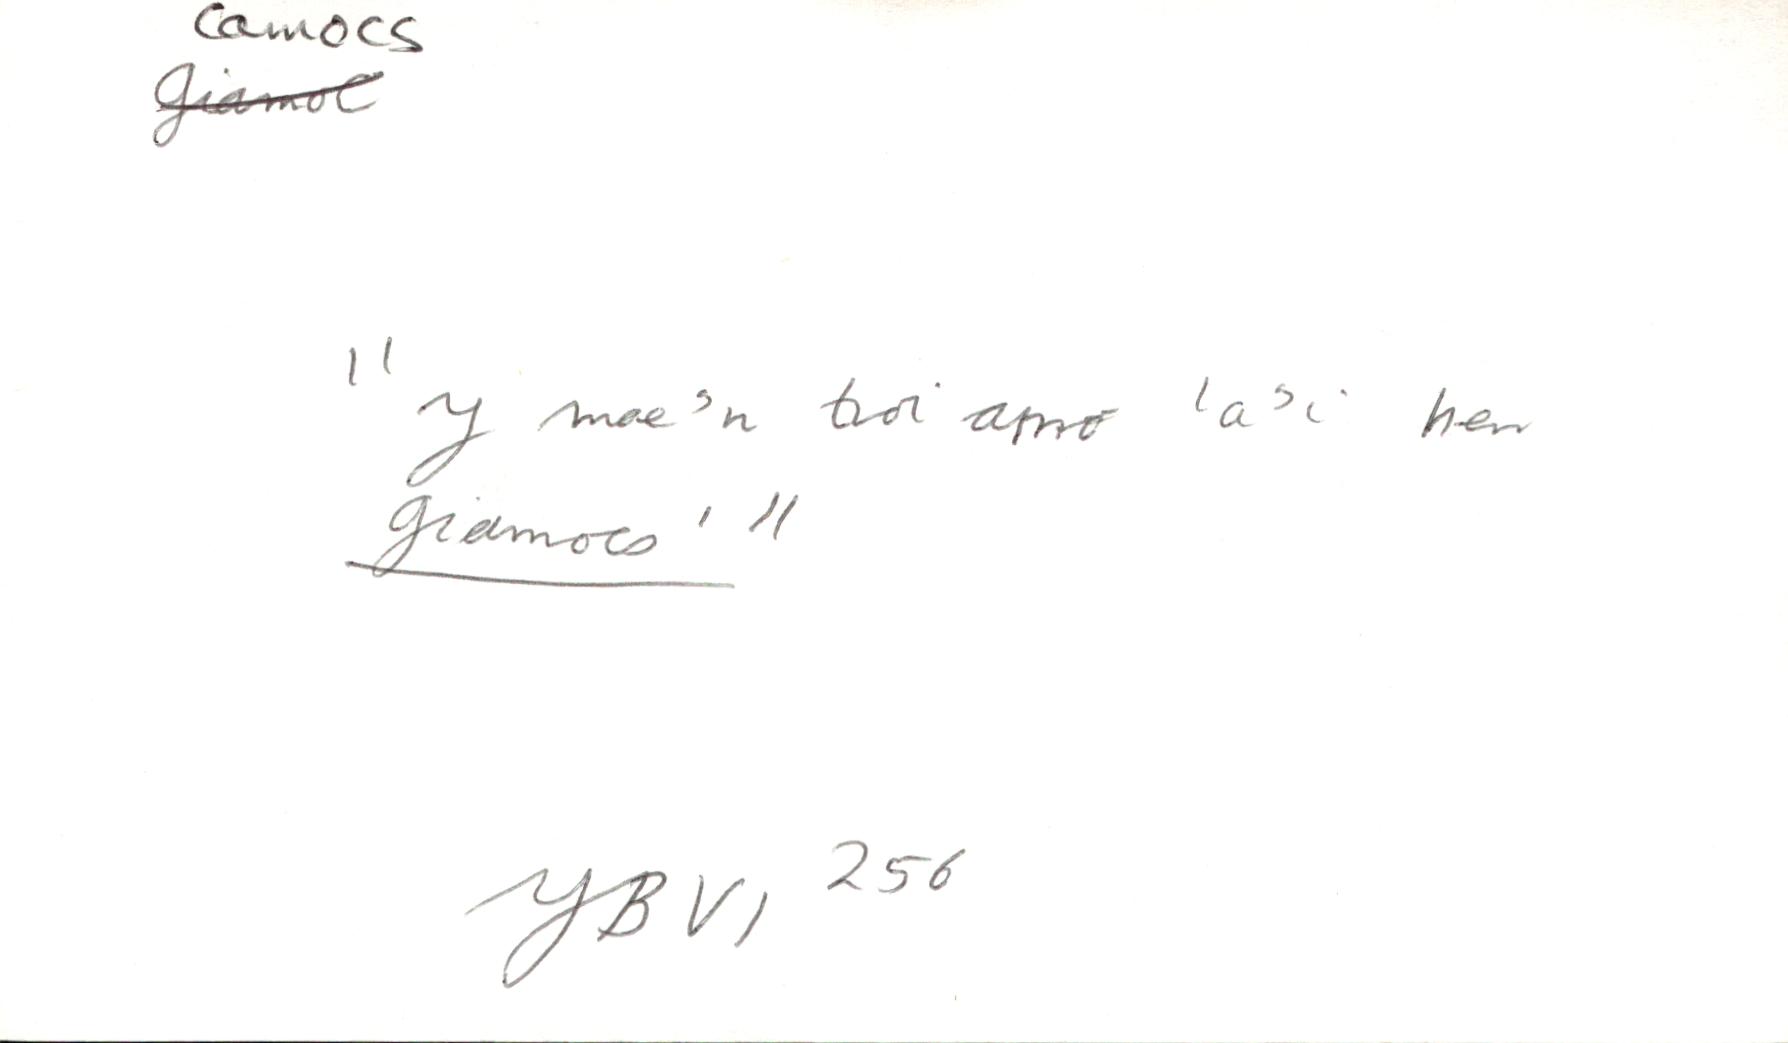 camocs
giamoc
"y mae'n troi arno 'a'i hen
giamocs'"
YB VI, 256